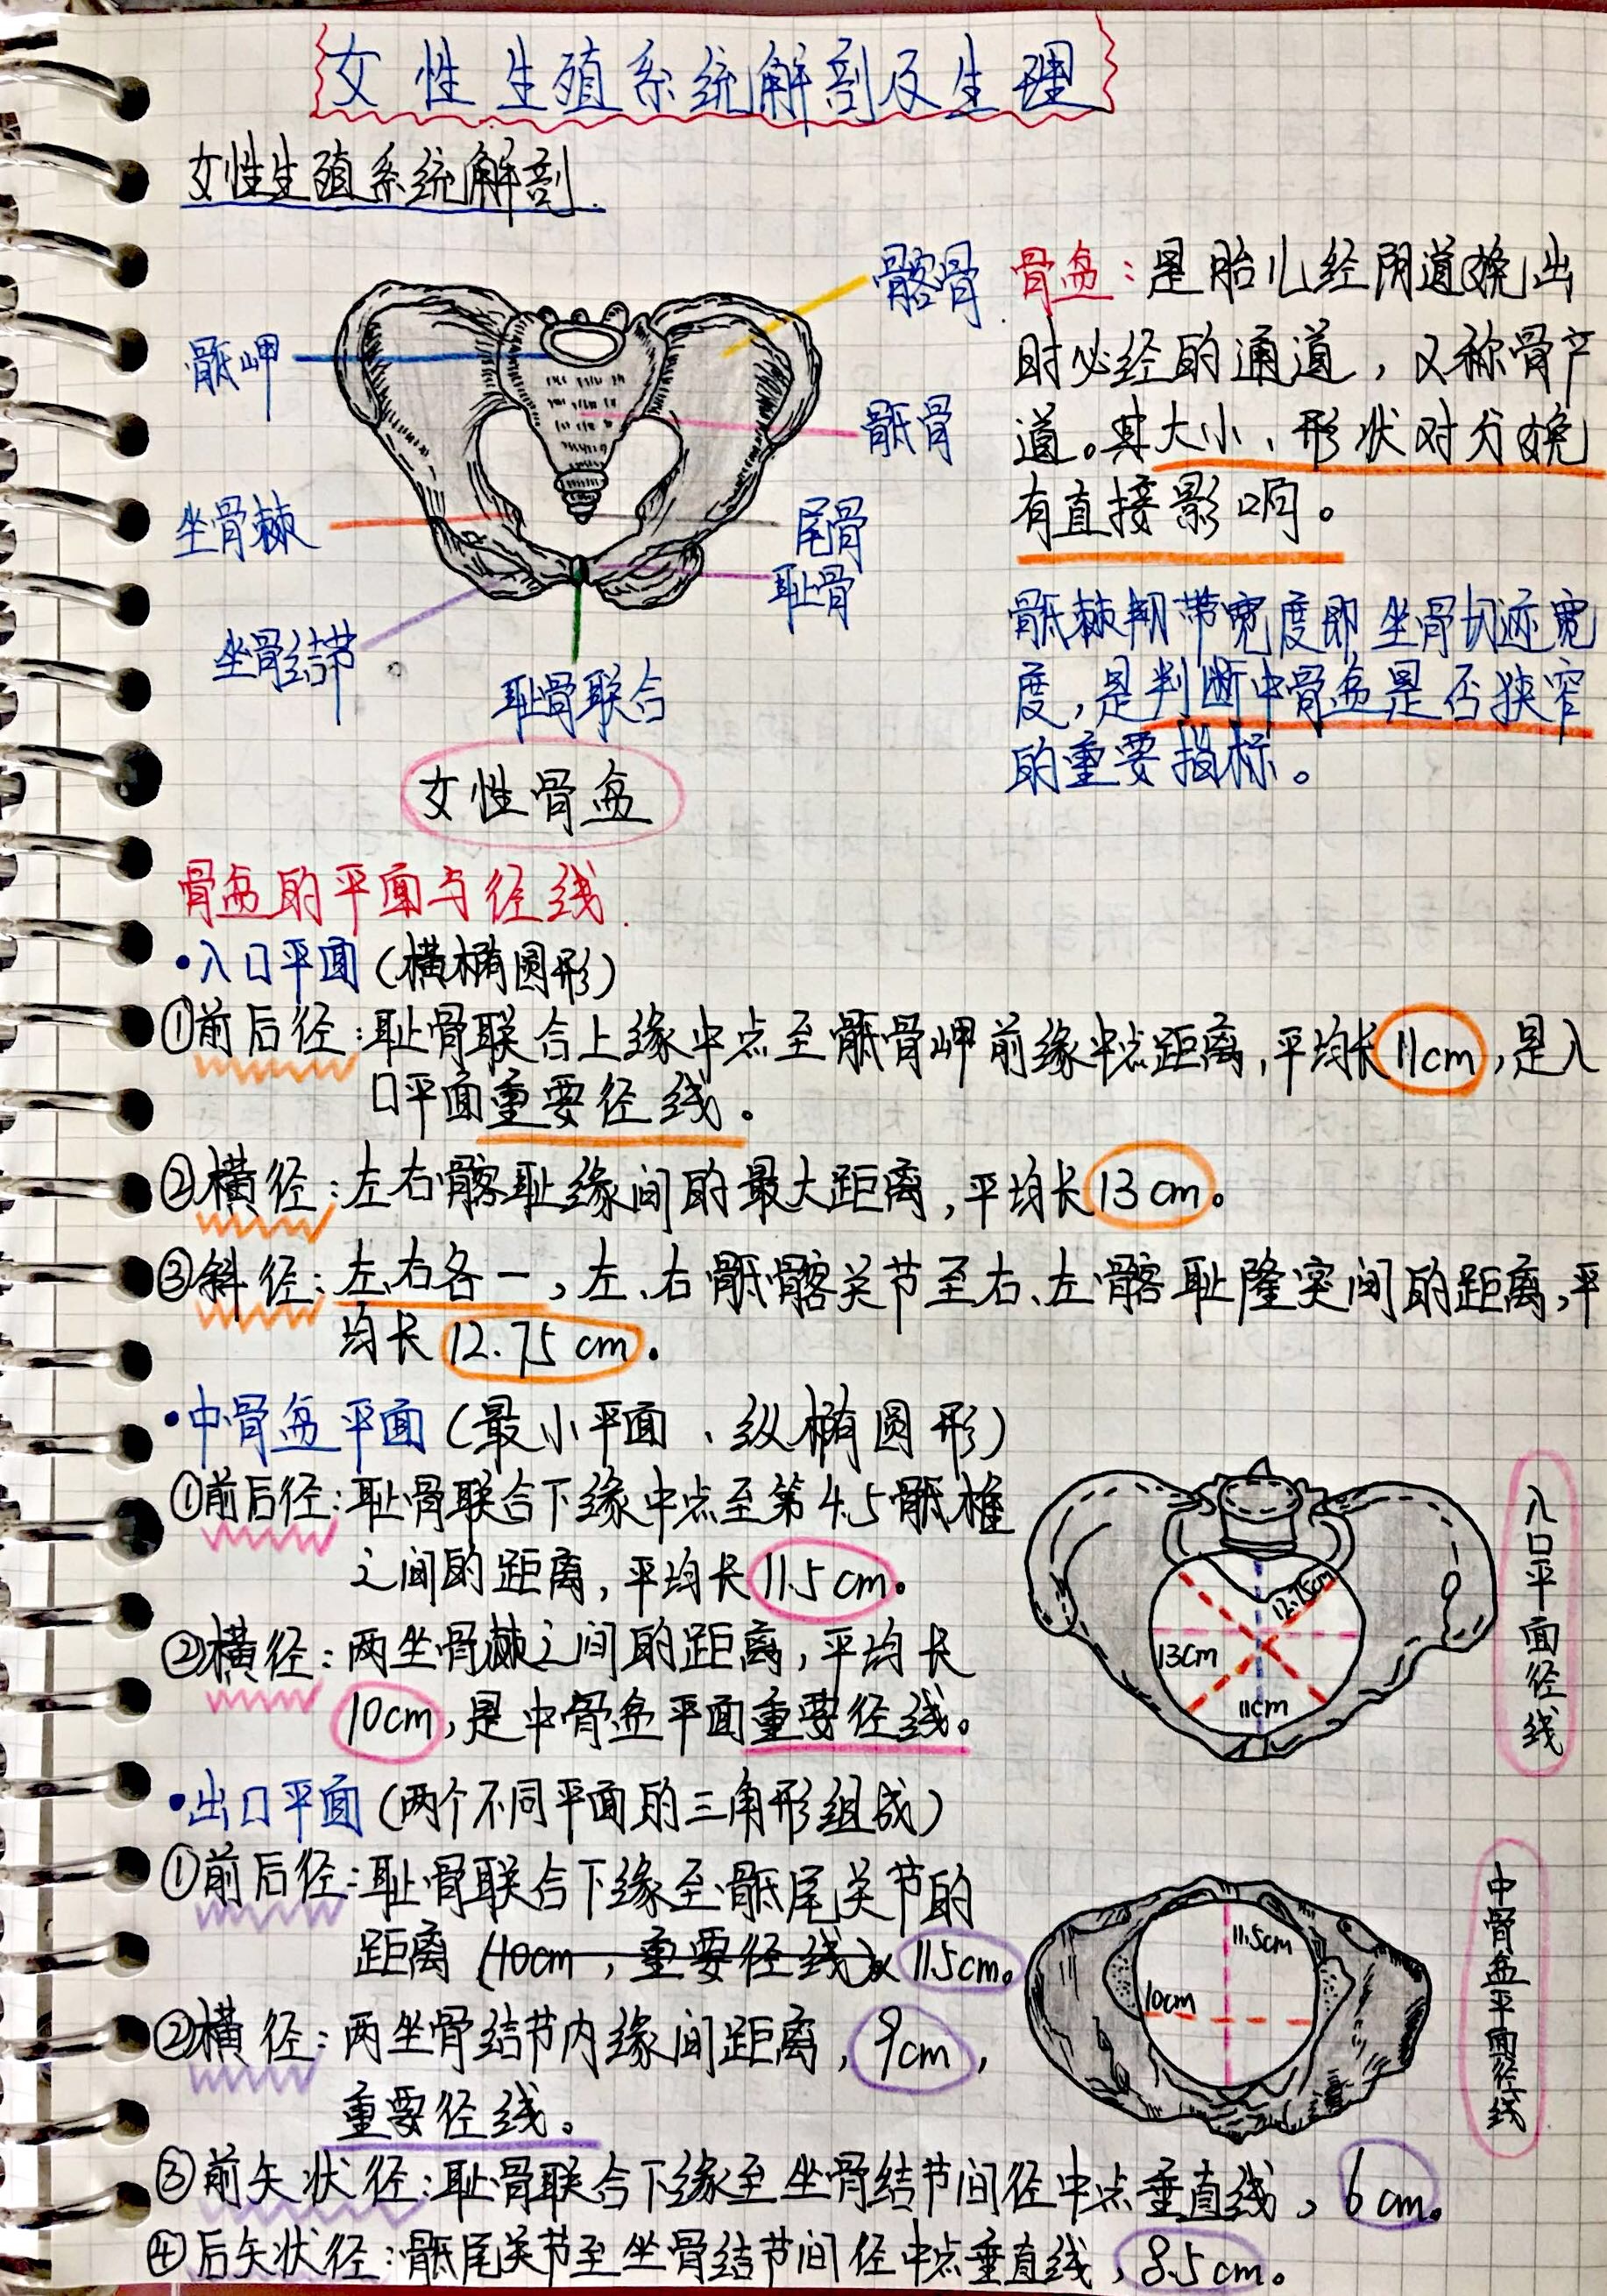 女性生殖系统解剖及生理
女性生殖系统解剖.
髂骨
骶岬
骶骨
坐骨棘
尾骨
耻骨
坐骨结节
耻骨联合
女性骨盆
骨盆：是胎儿经阴道娩出
时必经的通道，又称骨产
道。其大小、形状对分娩
有直接影响。
骶棘韧带宽度即坐骨切迹宽
度，是判断中骨盆是否狭窄
的重要指标。
骨盆的平面与径线.
•入口平面（横椭圆形）
①前后径：耻骨联合上缘中点至骶骨岬前缘中点距离，平均长11cm，是入
口平面重要径线。
②横径：左右髂耻缘间的最大距离，平均长13cm。
③斜径：左右各一，左、右骶髂关节至右、左髂耻隆突间的距离，平
均长12.75cm。
•中骨盆平面（最小平面、纵椭圆形）
①前后径：耻骨联合下缘中点至第4.5骶椎
之间的距离，平均长11.5cm。
②横径：两坐骨棘之间的距离，平均长
10cm，是中骨盆平面重要径线。
入口平面径线
12.75cm
13cm
11cm
•出口平面（两个不同平面的三角形组成）
①前后径：耻骨联合下缘至骶尾关节的
距离（10cm，重要径线）11.5cm。
②横径：两坐骨结节内缘间距离，9cm，
重要径线。
中骨盆平面径线
11.5cm
10cm
③前矢状径：耻骨联合下缘至坐骨结节间径中点垂直线，6cm。
④后矢状径：骶尾关节至坐骨结节间径中点垂直线，8.5cm。